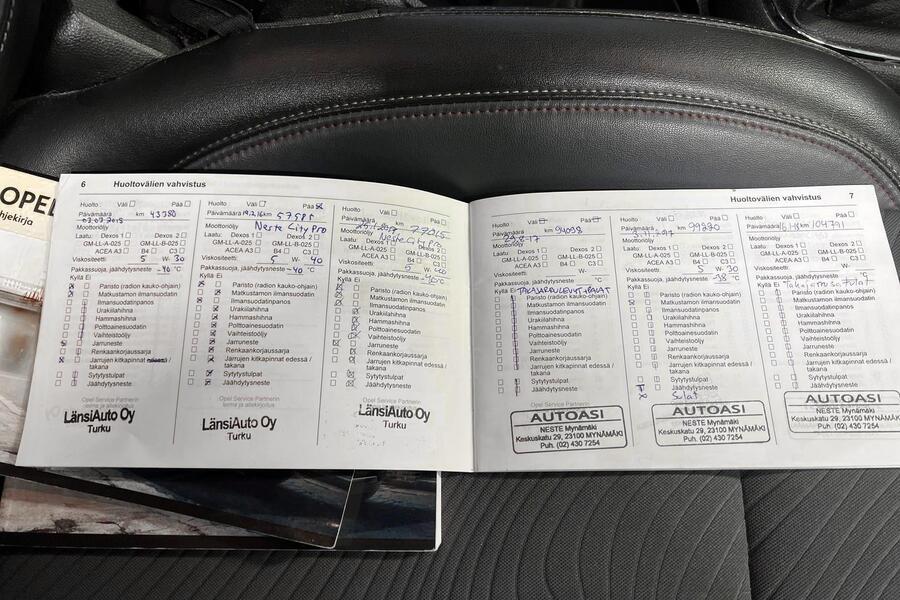 OPEL
hjekirja
6 Huoltovälien vahvistus
Huolto: Väli Pää
Päivämäärä km 43780
Moottoriöljy
Laatu: Dexos 1 Dexos 2
GM-LL-A-025 GM-LL-B-025
ACEA A3 B4 C3
Viskositeetti: 5 W- 30
Pakkassuoja, jäähdytysneste -40 °C
Kyllä Ei
Paristo (radion kauko-ohjain)
Matkustamon ilmansuodatin
Ilmansuodatinpanos
Urakiilahihna
Hammashihna
Polttoainesuodatin
Vaihteistoöljy
Jarruneste
Renkaankorjaussarja
Jarrujen kitkapinnat edessä /
takana
Sytytystulpat
Jäähdytysneste
Opel Service Partnerin
leima ja allekirjoitus
LänsiAuto Oy
Turku
Huolto: Väli Pää
Päivämäärä 19.2.16 km 57585
Moottoriöljy Neste City Pro
Laatu: Dexos 1 Dexos 2
GM-LL-A-025 GM-LL-B-025
ACEA A3 B4 C3
Viskositeetti: 5 W- 40
Pakkassuoja, jäähdytysneste -40 °C
Kyllä Ei
Paristo (radion kauko-ohjain)
Matkustamon ilmansuodatin
Ilmansuodatinpanos
Urakiilahihna
Hammashihna
Polttoainesuodatin
Vaihteistoöljy
Jarruneste
Renkaankorjaussarja
Jarrujen kitkapinnat edessä /
takana
Sytytystulpat
Jäähdytysneste
Opel Service Partnerin
leima ja allekirjoitus
LänsiAuto Oy
Turku
Huolto: Väli Pää
Päivämäärä km 77015
Moottoriöljy Neste City Pro
Laatu: Dexos 1 Dexos 2
GM-LL-A-025 GM-LL-B-025
ACEA A3 B4 C3
Viskositeetti: 5 W- 40
Pakkassuoja, jäähdytysneste -40 °C
Kyllä Ei
Paristo (radion kauko-ohjain)
Matkustamon ilmansuodatin
Ilmansuodatinpanos
Urakiilahihna
Hammashihna
Polttoainesuodatin
Vaihteistoöljy
Jarruneste
Renkaankorjaussarja
Jarrujen kitkapinnat edessä /
takana
Sytytystulpat
Jäähdytysneste
Opel Service Partnerin
LänsiAuto Oy
Turku
Huoltovälien vahvistus 7
Huolto: Väli Pää
Päivämäärä km 94008
Moottoriöljy
Laatu: Dexos 1 Dexos 2
GM-LL-A-025 GM-LL-B-025
ACEA A3 B4 C3
Viskositeetti: W-
Pakkassuoja, jäähdytysneste °C
Kyllä Ei
Paristo (radion kauko-ohjain)
Matkustamon ilmansuodatin
Ilmansuodatinpanos
Urakiilahihna
Hammashihna
Polttoainesuodatin
Vaihteistoöljy
Jarruneste
Renkaankorjaussarja
Jarrujen kitkapinnat edessä /
takana
Sytytystulpat
Jäähdytysneste
Opel Service Partnerin
AUTOASI
NESTE Mynämäki
Keskuskatu 29, 23100 MYNÄMÄKI
Puh. (02) 430 7254
Huolto: Väli Pää
Päivämäärä 3.11.17 km 99220
Moottoriöljy
Laatu: Dexos 1 Dexos 2
GM-LL-A-025 GM-LL-B-025
ACEA A3 B4 C3
Viskositeetti: 5 W- 30
Pakkassuoja, jäähdytysneste -38 °C
Kyllä Ei
Paristo (radion kauko-ohjain)
Matkustamon ilmansuodatin
Ilmansuodatinpanos
Urakiilahihna
Hammashihna
Polttoainesuodatin
Vaihteistoöljy
Jarruneste
Renkaankorjaussarja
Jarrujen kitkapinnat edessä /
takana
Sytytystulpat
Jäähdytysneste
Sulat
AUTOASI
NESTE Mynämäki
Keskuskatu 29, 23100 MYNÄMÄKI
Puh. (02) 430 7254
Huolto: Väli Pää
Päivämäärä km 104791
Moottoriöljy
Laatu: Dexos 1 Dexos 2
GM-LL-A-025 GM-LL-B-025
ACEA A3 B4 C3
Viskositeetti: W-
Pakkassuoja, jäähdytysneste °C
Kyllä Ei
Paristo (radion kauko-ohjain)
Matkustamon ilmansuodatin
Ilmansuodatinpanos
Urakiilahihna
Hammashihna
Polttoainesuodatin
Vaihteistoöljy
Jarruneste
Renkaankorjaussarja
Jarrujen kitkapinnat edessä /
takana
Sytytystulpat
Jäähdytysneste
AUTOASI
NESTE Mynämäki
Keskuskatu 29, 23100 MYNÄMÄKI
Puh. (02) 430 7254